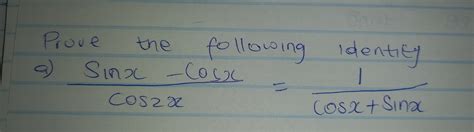 Prove the following identity
a) Sinx - Cosx / Cos2x = 1 / Cosx + Sinx